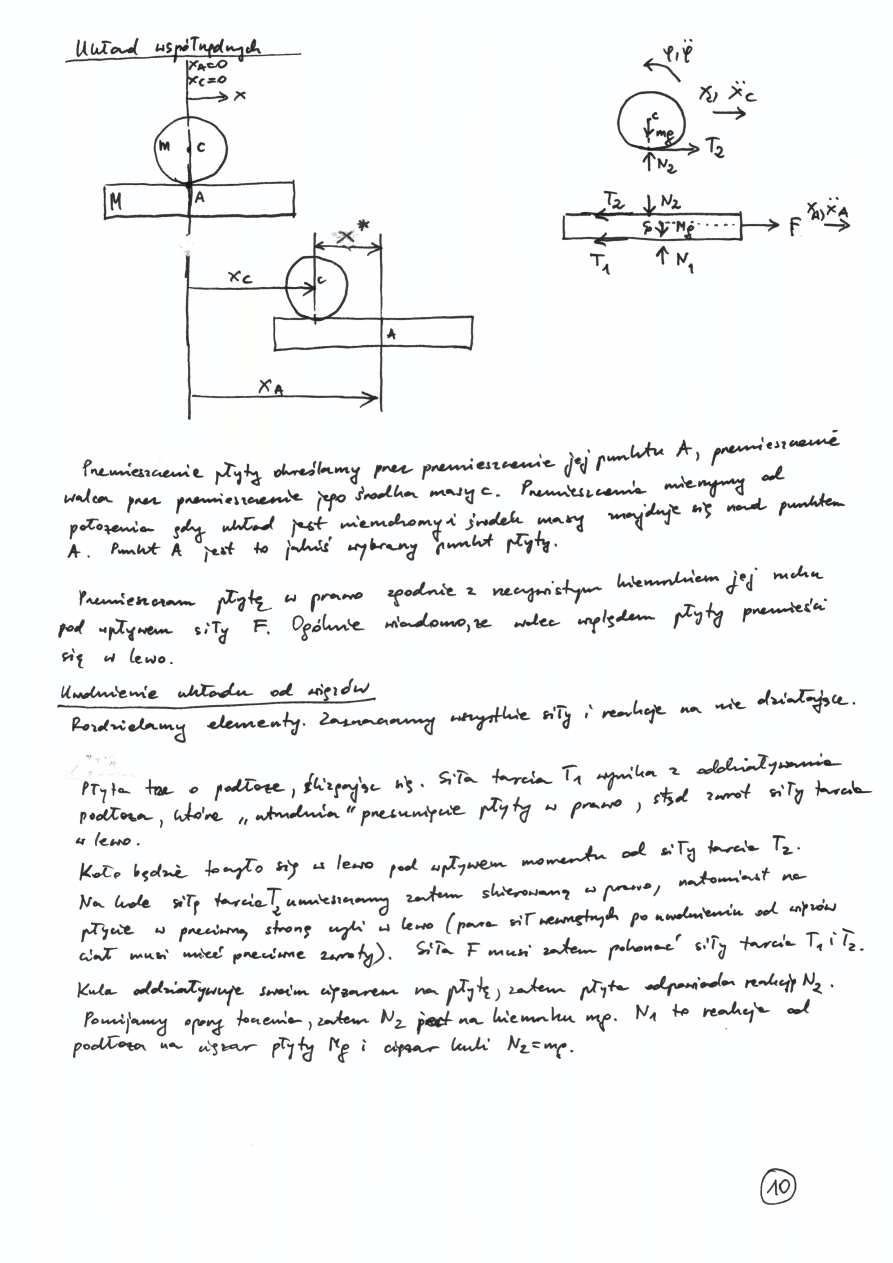 Układ współrzędnych
x_A=0
x_C=0
x
m C
M A
x*
x_C C
A
x_A
φ, φ̈
x_C, ẍ_C
C
mg
T₂
N₂
T₂ N₂
S Mg F x_A, ẍ_A
T₁ N₁
Przemieszczenie płyty określamy przez przemieszczenie jej punktu A, przemieszczenie
walca przez przemieszczenie jego środka masy C. Przemieszczenia mierzymy od
położenia gdy układ jest nieruchomy i środek masy znajduje się nad punktem
A. Punkt A jest to jakiś wybrany punkt płyty.
Przemieszczam płytę w prawo zgodnie z rzeczywistym kierunkiem jej ruchu
pod wpływem siły F. Ogólnie wiadomo, że walec względem płyty przemieści
się w lewo.
Uwolnienie układu od więzów
Rozdzielamy elementy. Zaznaczamy wszystkie siły i reakcje na nie działające.
Płyta trze o podłoże, ślizgając się. Siła tarcia T₁ wynika z oddziaływania
podłoża, które „utrudnia" przesunięcie płyty w prawo, stąd zwrot siły tarcia
w lewo.
Koło będzie toczyło się w lewo pod wpływem momentu od siły tarcia T₂.
Na kole siłę tarcia T₂ umieszczamy zatem skierowaną w prawo, natomiast na
płycie w przeciwną stronę czyli w lewo (para sił wewnętrznych po uwolnieniu od więzów
ciał musi mieć przeciwne zwroty). Siła F musi zatem pokonać siły tarcia T₁ i T₂.
Kula oddziaływuje swoim ciężarem na płytę, zatem płyta odpowiada reakcją N₂.
Pomijamy opory toczenia, zatem N₂ jest na kierunku mg. N₁ to reakcja od
podłoża na ciężar płyty Mg i ciężar kuli N₂=mg.
10